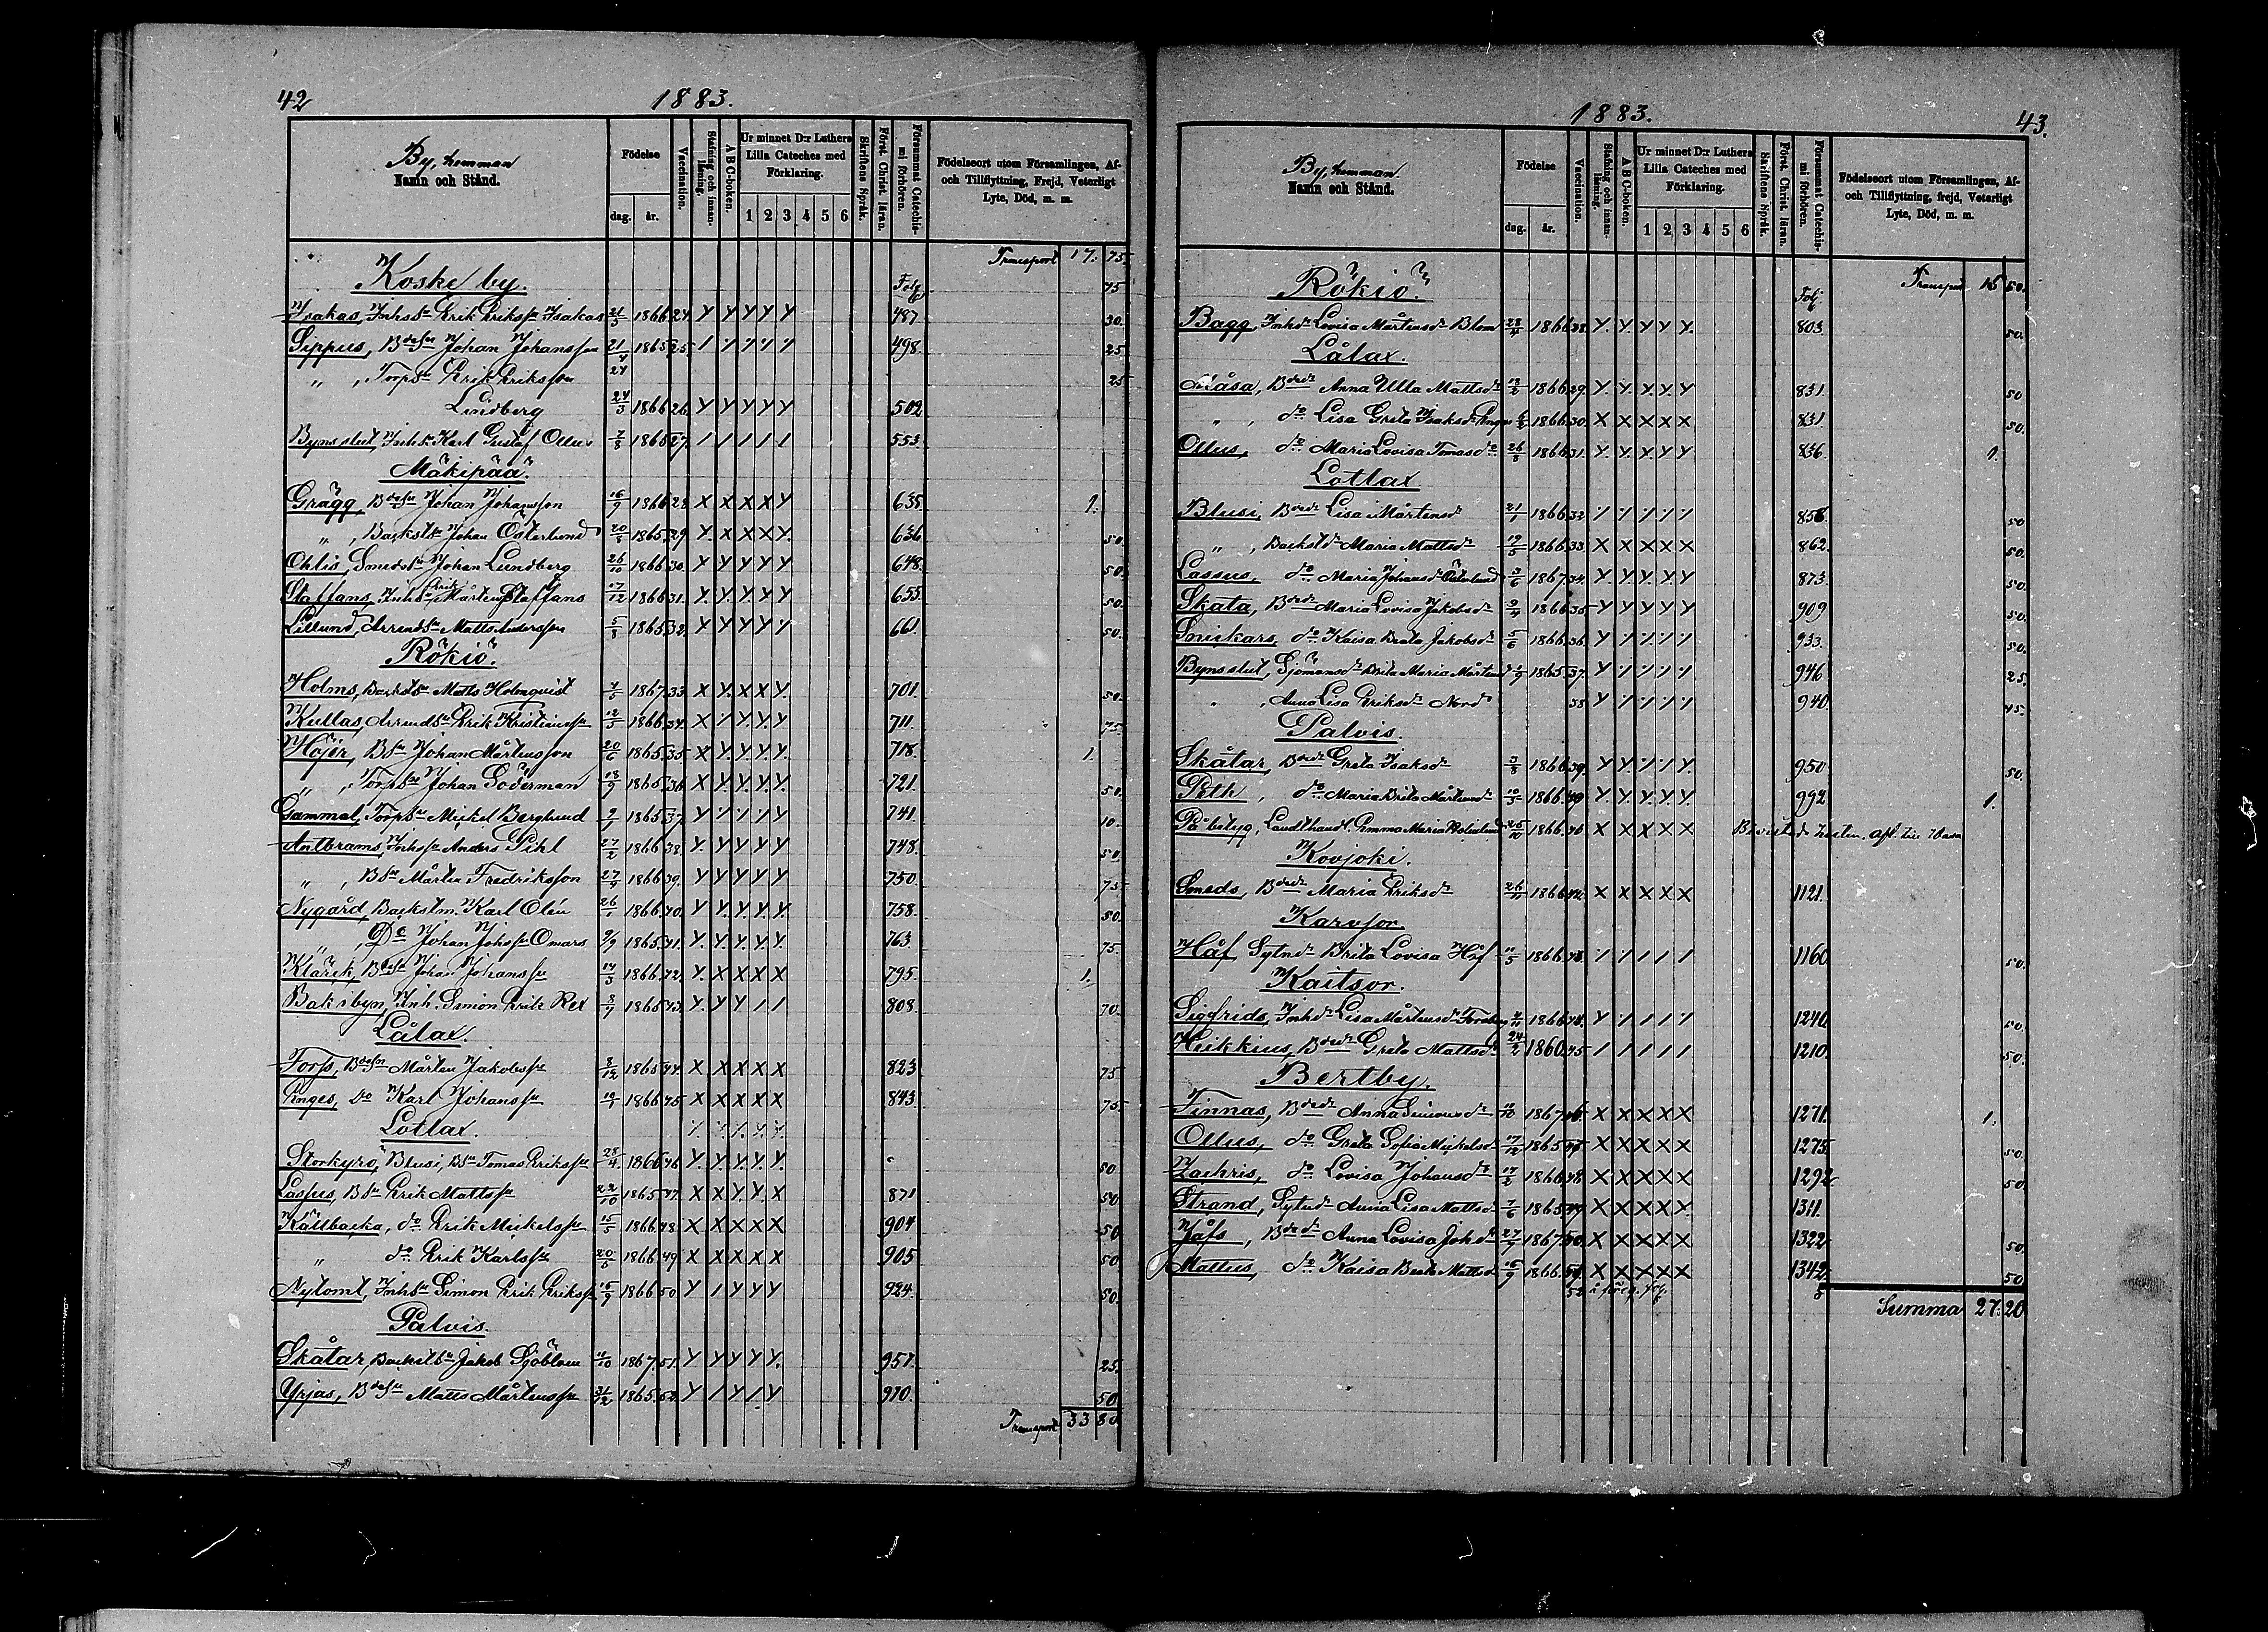 42 1883.
By, hemman Namn och Stånd.
Födelse dag. år.
Vaccination.
Stafning och innanläsning.
A B C-boken.
Ur minnet D:r Luthers Lilla Cateches med Förklaring. 1 2 3 4 5 6
Skriftens Språk.
Först. Christ. läran.
Försummat Catechismi förhören.
Födelseort utom Församlingen, Af- och Tillflyttning, Frejd, Veterligt Lyte, Död, m. m.
Transport 17. 75.
Koske by. Folj 45
Isakas, Inhsn Erik Eriksn Isakas 21/5 1866 24. Y Y Y Y Y 487 30.
Sippus, Bdesn Johan Johansson 21/4 1865 25. / / / / / 498 25
" , Torpsn Erik Eriksson 24 25
Lindberg 24/3 1866 26. Y Y Y Y Y 502
Bynsslut, Inhsn Karl Gustaf Ollus 7/8 1865 27. / / / / / 553.
Mäkipää.
Grägg, Bdesn Johan Johansson 16/9 1866 28 X X X X Y 635 1.
" , Backstsn Johan Österlund 20/8 1865 29 Y. X X X Y. 636 50.
Ohlis, Smedsn Johan Lundberg 26/10 1866 30. Y Y Y Y Y 648. 50.
Staffans, Inhsn Erik Mårten Staffans 17/12 1866 31. Y. Y. Y Y Y 655. 50.
Lillund, Arrendsn Matts Andersson 5/8 1865 32. X Y Y Y Y 661. 50.
Rökiö.
Holms, Backstsn Matts Holmqvist 4/5 1867 33 X Y. X X Y. 701. 50.
Kullas, Arrendsn Erik Kristiansn 12/5 1866 34. X Y. Y. Y. Y 711. 75.
Höjer, Bsn Johan Mårtensson 20/6 1865 35 X Y. Y. Y. Y. 718. 1.
" , Torpsn Johan Söderman 13/9 1865 36 X Y. Y. Y. Y. 721. 50.
Gammal, Torpsn Mickel Berglund 9/1 1865 37. Y / / / Y 741. 10.
Antbrams, Inhsn Anders Pihl 27/2 1866 38. Y. Y Y Y Y 748. 50.
" , Bsn Mårten Fredriksson 27/9 1866 39. Y Y Y Y Y 750. 75
Nygård, Backstm. Karl Olén 26/1 1866 40. Y Y. Y. Y. Y. 758. 50.
" , Do Johan Johsn Omars 9/9 1865 41. Y. Y. Y. Y. Y. 763. 75.
Klärik, Bdesn Johan Johansn 14/3 1866 42. Y. X X X X 795. 1.
Bakibyn, Inh. Simon Erik Rex 8/7 1865 43. Y. Y Y / / 808. 70.
Lålax.
Forss, Bdesn Mårten Jakobsn 8/12 1865 44. X X X X X 823 75
Pinges, Do Karl Johansn 10/1 1866 45 X X X X X 843. 75.
Lotlax.
Storkyro, Blusi, Bsn Tomas Eriksn 28/4. 1866 46. Y. Y. Y. Y. Y. 50
Lassus, Bsn Erik Mattsn 22/10 1865 47. X X Y. Y. X 871 50
Källbacka, do Erik Mickelsn 15/5 1866 48. X X X X X 904 50
" do Erik Karlsn 20/5 1866 49 X X X X X 905 50
Nytomt, Inhsn Simon Erik Eriksn 16/7 1866 50 Y / Y Y Y 924. 50.
Palvis.
Skåtar, Backstsn Jakob Sjöblom 11/10 1867. 51. Y Y Y Y Y. 957. 25.
Yrjas, Bdesn Matts Mårtensn 31/12 1865 52. Y / Y / Y 970. 50
Transport 33 80
1883. 43.
By, hemman. Namn och Stånd.
Födelse dag. år.
Vaccination.
Stafning och innanläsning.
A B C-boken.
Ur minnet D:r Luthers Lilla Cateches med Förklaring. 1 2 3 4 5 6
Skriftens Språk.
Först. Christ. läran.
Försummat Catechismi förhören.
Födelseort utom Församlingen, Af- och Tillflyttning, frejd, Veterligt Lyte, Död, m. m.
Transport 15 50.
Rökiö. Folj.
Bagg, Inhdr Lovisa Mårtensdr Blom 23/4 1866 28. Y. Y. Y. Y Y. 803. 50.
Lålax.
Måsa, Bdedr Anna Ulla Mattsdr 13/2 1866 29. Y. Y. Y. Y. Y 831. 50
" , do Lisa Greta Isaksdr Pinges 1866 30. X X X X X 831. 50.
Ollus, do Maria Lovisa Tomasdr 26/8 1866 31. Y. Y. Y. Y Y 836. 1.
Lotlax
Blusi, Bdedr Lisa Mårtensdr 21/1 1866 32 / / / / / 858. 50
" , Backstdr Maria Mattsdr 19/5 1866 33. X X X X X 862. 50.
Lassus, do Maria Johansdr Österlund 3/6 1867 34. Y. Y. Y. Y. Y 873. 50
Skata, Bdedr Maria Lovisa Jakobsdr 9/4 1866 35 Y Y Y Y Y 909 50.
Snickars, do Kaisa Brita Jakobsdr 5/6 1866 36. Y / / / / 933. 50.
Bynsslut, Sjömansdr Brita Maria Mårtensdr 1865 37. Y / / / / 946 25.
" , Anna Lisa Eriksdr Nord 38 Y / / / / 940. 45.
Palvis.
Skåtar, Bdedr Greta Isaksdr 3/8 1866 39. Y Y / / Y. 950 50.
Peth, do Maria Brita Mårtensdr 10/3 1866 40 Y. Y. Y. Y. Y. 992. 1.
Påbstyg, Landthandl. Emma Maria 25/10 1866. X X X X X
Kovjoki.
Smeds, Bdedr Maria Eriksdr 26/11 1866 42. X X X X X 1121.
Karvsor.
Håf, Sytndr Brita Lovisa Håf 11/5 1866 43 / / / / / 1160. 50.
Kaitsor.
Sigfrids, Inhdr Lisa Mårtensdr Forsberg 4/11 1866 44. Y / / / / 1240. 50.
Heikkius, Bdedr Greta Mattsdr 24/2 1860. 45 / / / / / 1210. 50.
Bertby.
Finnas, Bdedr Anna Simonsdr 12/10 1867 46 X X X X X 1271. 1.
Ollus, do Greta Sofia Mickelsdr 17/12 1865 47 X X X X X 1275. 50.
Zachris, do Lovisa Johansdr 17/2 1866 48 X X X X X 1292 50.
Strand, Sytndr Anna Lisa Mattsdr 7/6 1865 49 X X X X Y. 1311.
Jåfs, Bdedr Anna Lovisa Johdr 27/7 1867. 50. X X X X X 1322 50.
Mattus, do Kaisa Brita Mattsdr 16/9 1866. 51. X X X X X 1342. 50
52 å föreg. folj.
Summa 27. 20